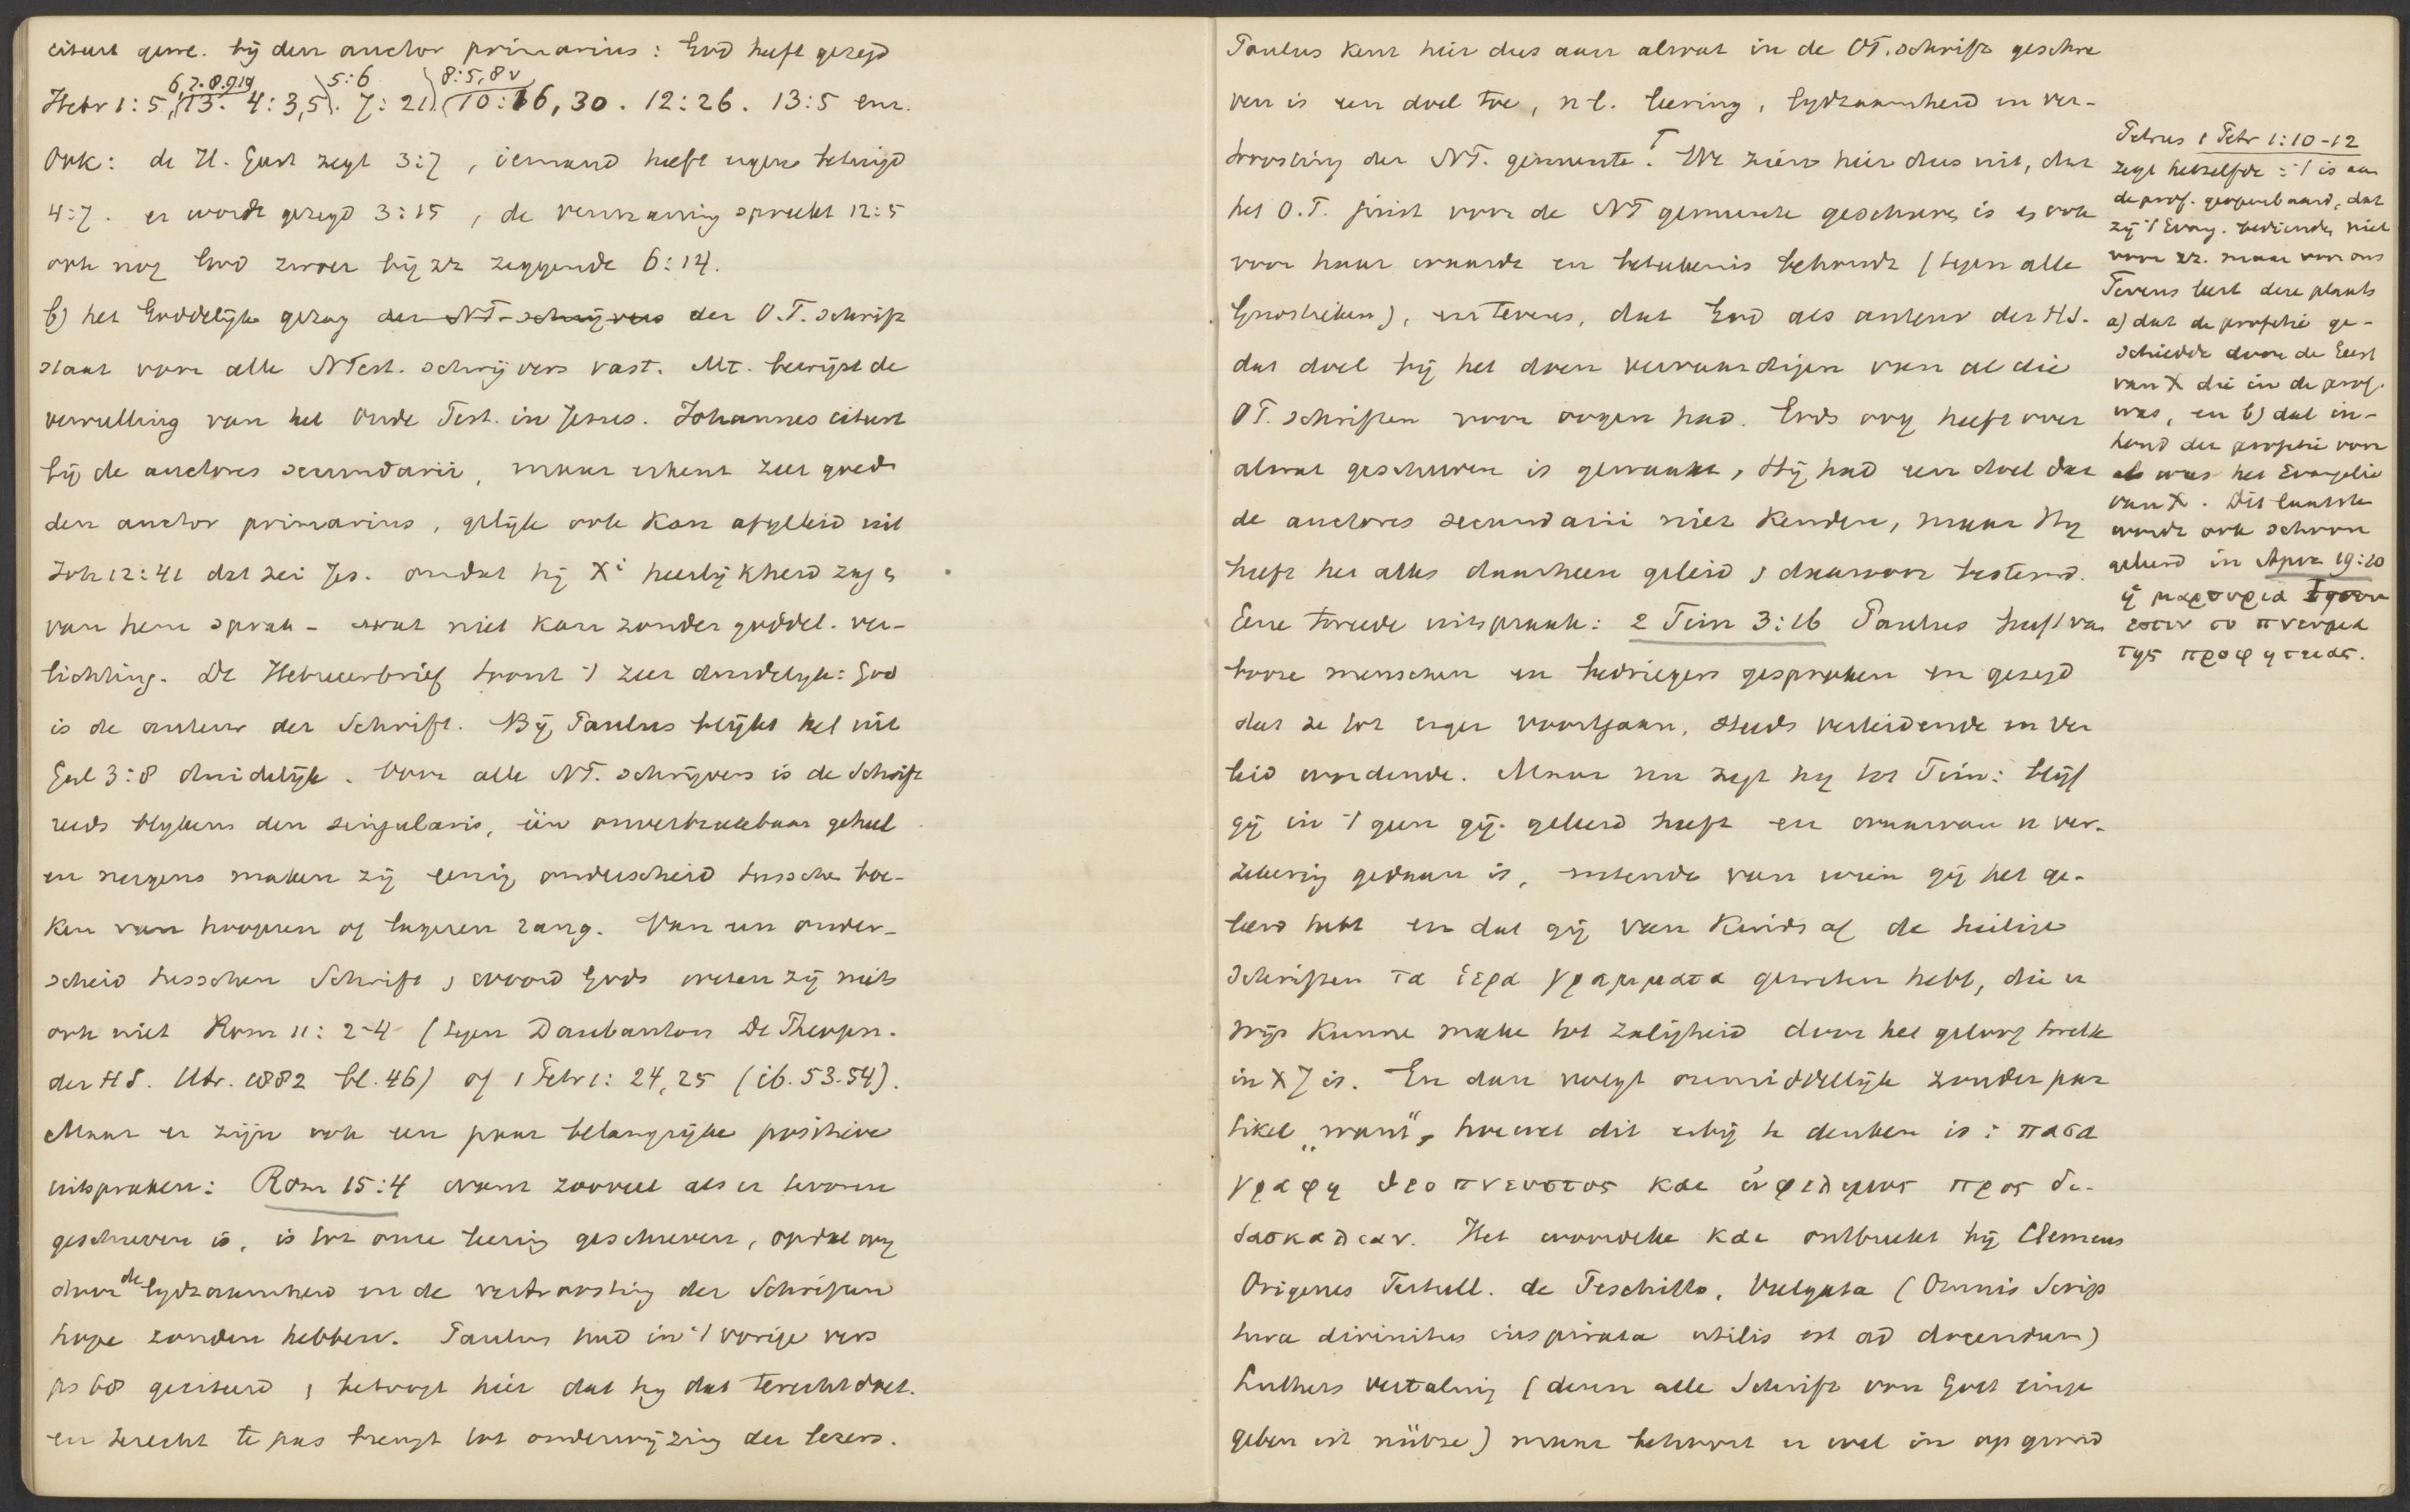 citeert gew. bij den auctor primarius: God heeft gezegd
6, 7. 8. 9 10 5:6 8:5, 8 v
Hebr 1:5, 13. 4:3,5. 7:21. 10:16, 30. 12:26. 13:5 enz.
Ook: de H. Geest zegt 3:7, iemand heeft ergens betuigd
4:7. er wordt gezegd 3:15, de vermaning spreekt 12:5
ook nog God zwoer bij zz zeggende 6:14.
b) het Goddelijk gezag der NT-schrijvers der O.T. schrift
staat voor alle NTest. schrijvers vast. Mt. bewijst de
vervulling van het Oude Test. in Jezus. Johannes citeert
bij de auctores secundarii, maar erkent zeer goed
den auctor primarius, gelijk ook kan afgeleid uit
Joh 12:41 dat zei Jes. omdat hij Xi heerlijkheid zag en
van hem sprak - wat niet kan zonder goddel. ver-
lichting. De Hebreerbrief toont 't zeer duidelyk: God
is de auteur der Schrift. Bij Paulus blijkt het uit
Gal 3:8 duidelijk. Voor alle NT. schrijvers is de Schrift
reeds blykens den singularis, één onverbreekbaar geheel
en nergens maken zij eenig onderscheid tussche boe-
ken van hoogeren of lageren rang. Van een onder-
scheid tusschen Schrift en woord Gods weten zij niets
ook niet Rom 11:2-4 (tegen Daubanton De Theopn.
der HS. Utr. 1882 bl. 46) of 1 Petr 1:24,25 (ib. 53.54).
Maar er zijn ook een paar belangrijke positieve
uitspraken: Rom 15:4 want zooveel als er tevoren
geschreven is, is tot onze leering geschreven, opdat wij
door de lydzaamheid en de vertroosting der Schriften
hope zouden hebben. Paulus had in 't vorige vers
ps 68 geciteerd en betoogt hier dat hij dat terecht doet.
en terecht te pas brengt tot onderwijzing der lezers.
Paulus kent hier dus aan alwat in de OT. schrift geschre
ven is een doel toe, n.l. leering, lydzaamheid en ver-
troosting der NT. gemeente. We zien hier dus uit, dat
het O.T. juist voor de NT gemeente geschreven is en ook
voor haar waarde en beteekenis behoudt (tegen alle
Gnostieken), en tevens, dat God als auteur der HS.
dat doel bij het doen vervaardigen van al die
OT. schriften voor oogen had. Gods oog heeft over
alwat geschreven is gewaakt, Hij had een doel dat
de auctores secundarii niet kenden, maar Hij
heeft het alles daarheen geleid en daarvoor bestemd.
Eene tweede uitspraak: 2 Tim 3:16 Paulus heeft van
booze menschen en bedriegers gesproken en gezegd
dat ze tot erger voortgaan, steeds verleidende en ver
leid wordende. Maar nu zegt hy tot Tim: blijf
gij in 't geen gij geleerd heeft en waarvan u ver-
zekering gedaan is, wetende van wien gij het ge-
leerd hebt en dat gij van kinds af de heilige
schriften τα ἱερα γραμματα geweten hebt, die u
wijs kunne make tot zaligheid door het geloof twelk
in X J is. En dan volgt onmiddellijk zonder par
tikel „want", hoewel dit erbij te denken is: πασα
γραφη θεοπνευστος και ὠφελιμος προς δι-
δασκαλιαν. Het woordeke και ontbreekt bij Clemens
Origenes Tertull. de Peschitto, Vulgata (Omnis Scrip
tura divinitus inspirata utilis est ad docendum)
Luthers vertaling (denn alle Schrift von Gott einge
geben ist nütze) maar behoort er wel in op grond
Petrus 1 Petr 1:10-12
zegt hetzelfde: 't is aan
de prof. geopenbaard, dat
zij 't Evang. bedienden niet
voor zz. maar voor ons
Tevens leert deze plaats
a) dat de profetie ge-
schiedde door de Geest
van X die in de prof.
was, en b) dat in-
houd der profetie voor
als was het Evangelie
van X. Dit laatste
wordt ook schoon
geleerd in Apoc 19:10
ἡ μαρτυρια Ἰησου
εστιν το πνευμα
της προφητειας.